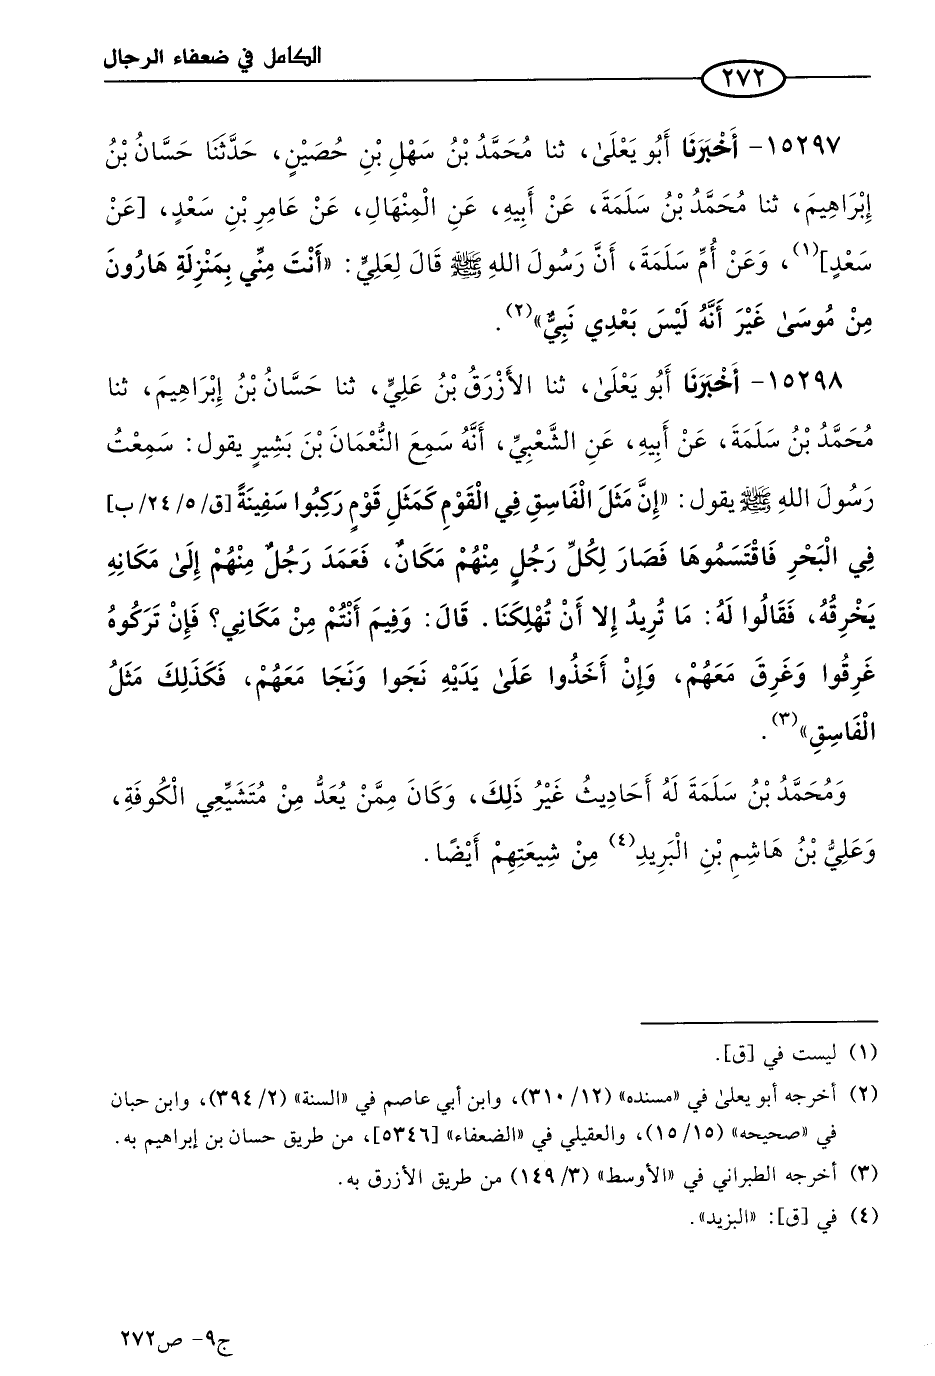 الكامل في ضعفاء الرجال
٢٧٢
١٥٢٩٧- أَخْبَرَنَا أَبُو يَعْلَىٰ، ثنا مُحَمَّدُ بْنُ سَهْلِ بْنِ حُصَيْنٍ، حَدَّثَنَا حَسَّانُ بْنُ
إِبْرَاهِيمَ، ثنا مُحَمَّدُ بْنُ سَلَمَةَ، عَنْ أَبِيهِ، عَنِ الْمِنْهَالِ، عَنْ عَامِرِ بْنِ سَعْدٍ، [عَنْ
سَعْدٍ](١)، وَعَنْ أُمِّ سَلَمَةَ، أَنَّ رَسُولَ اللهِ ﷺ قَالَ لِعَلِيٍّ: «أَنْتَ مِنِّي بِمَنْزِلَةِ هَارُونَ
مِنْ مُوسَىٰ غَيْرَ أَنَّهُ لَيْسَ بَعْدِي نَبِيٌّ»(٢).
١٥٢٩٨- أَخْبَرَنَا أَبُو يَعْلَىٰ، ثنا الأَزْرَقُ بْنُ عَلِيٍّ، ثنا حَسَّانُ بْنُ إِبْرَاهِيمَ، ثنا
مُحَمَّدُ بْنُ سَلَمَةَ، عَنْ أَبِيهِ، عَنِ الشَّعْبِيِّ، أَنَّهُ سَمِعَ النُّعْمَانَ بْنَ بَشِيرٍ يقول: سَمِعْتُ
رَسُولَ اللهِ ﷺ يقول: «إِنَّ مَثَلَ الْفَاسِقِ فِي الْقَوْمِ كَمَثَلِ قَوْمٍ رَكِبُوا سَفِينَةً [ق/٥/٢٤/ب]
فِي الْبَحْرِ فَاقْتَسَمُوهَا فَصَارَ لِكُلِّ رَجُلٍ مِنْهُمْ مَكَانٌ، فَعَمَدَ رَجُلٌ مِنْهُمْ إِلَىٰ مَكَانِهِ
يَخْرِقُهُ، فَقَالُوا لَهُ: مَا تُرِيدُ إِلا أَنْ تُهْلِكَنَا. قَالَ: وَفِيمَ أَنْتُمْ مِنْ مَكَانِي؟ فَإِنْ تَرَكُوهُ
غَرِقُوا وَغَرِقَ مَعَهُمْ، وَإِنْ أَخَذُوا عَلَىٰ يَدَيْهِ نَجَوا وَنَجَا مَعَهُمْ، فَكَذَلِكَ مَثَلُ
الْفَاسِقِ»(٣).
وَمُحَمَّدُ بْنُ سَلَمَةَ لَهُ أَحَادِيثُ غَيْرُ ذَلِكَ، وَكَانَ مِمَّنْ يُعَدُّ مِنْ مُتَشَيِّعِي الْكُوفَةِ،
وَعَلِيُّ بْنُ هَاشِمِ بْنِ الْبَرِيدِ(٤) مِنْ شِيعَتِهِمْ أَيْضًا.
(١) ليست في [ق].
(٢) أخرجه أبو يعلىٰ في «مسنده» (١٢/ ٣١٠)، وابن أبي عاصم في «السنة» (٢/ ٣٩٤)، وابن حبان
في «صحيحه» (١٥/ ١٥)، والعقيلي في «الضعفاء» [٥٣٤٦]، من طريق حسان بن إبراهيم به.
(٣) أخرجه الطبراني في «الأوسط» (٣/ ١٤٩) من طريق الأزرق به.
(٤) في [ق]: «البزيد».
ج٩- ص٢٧٢